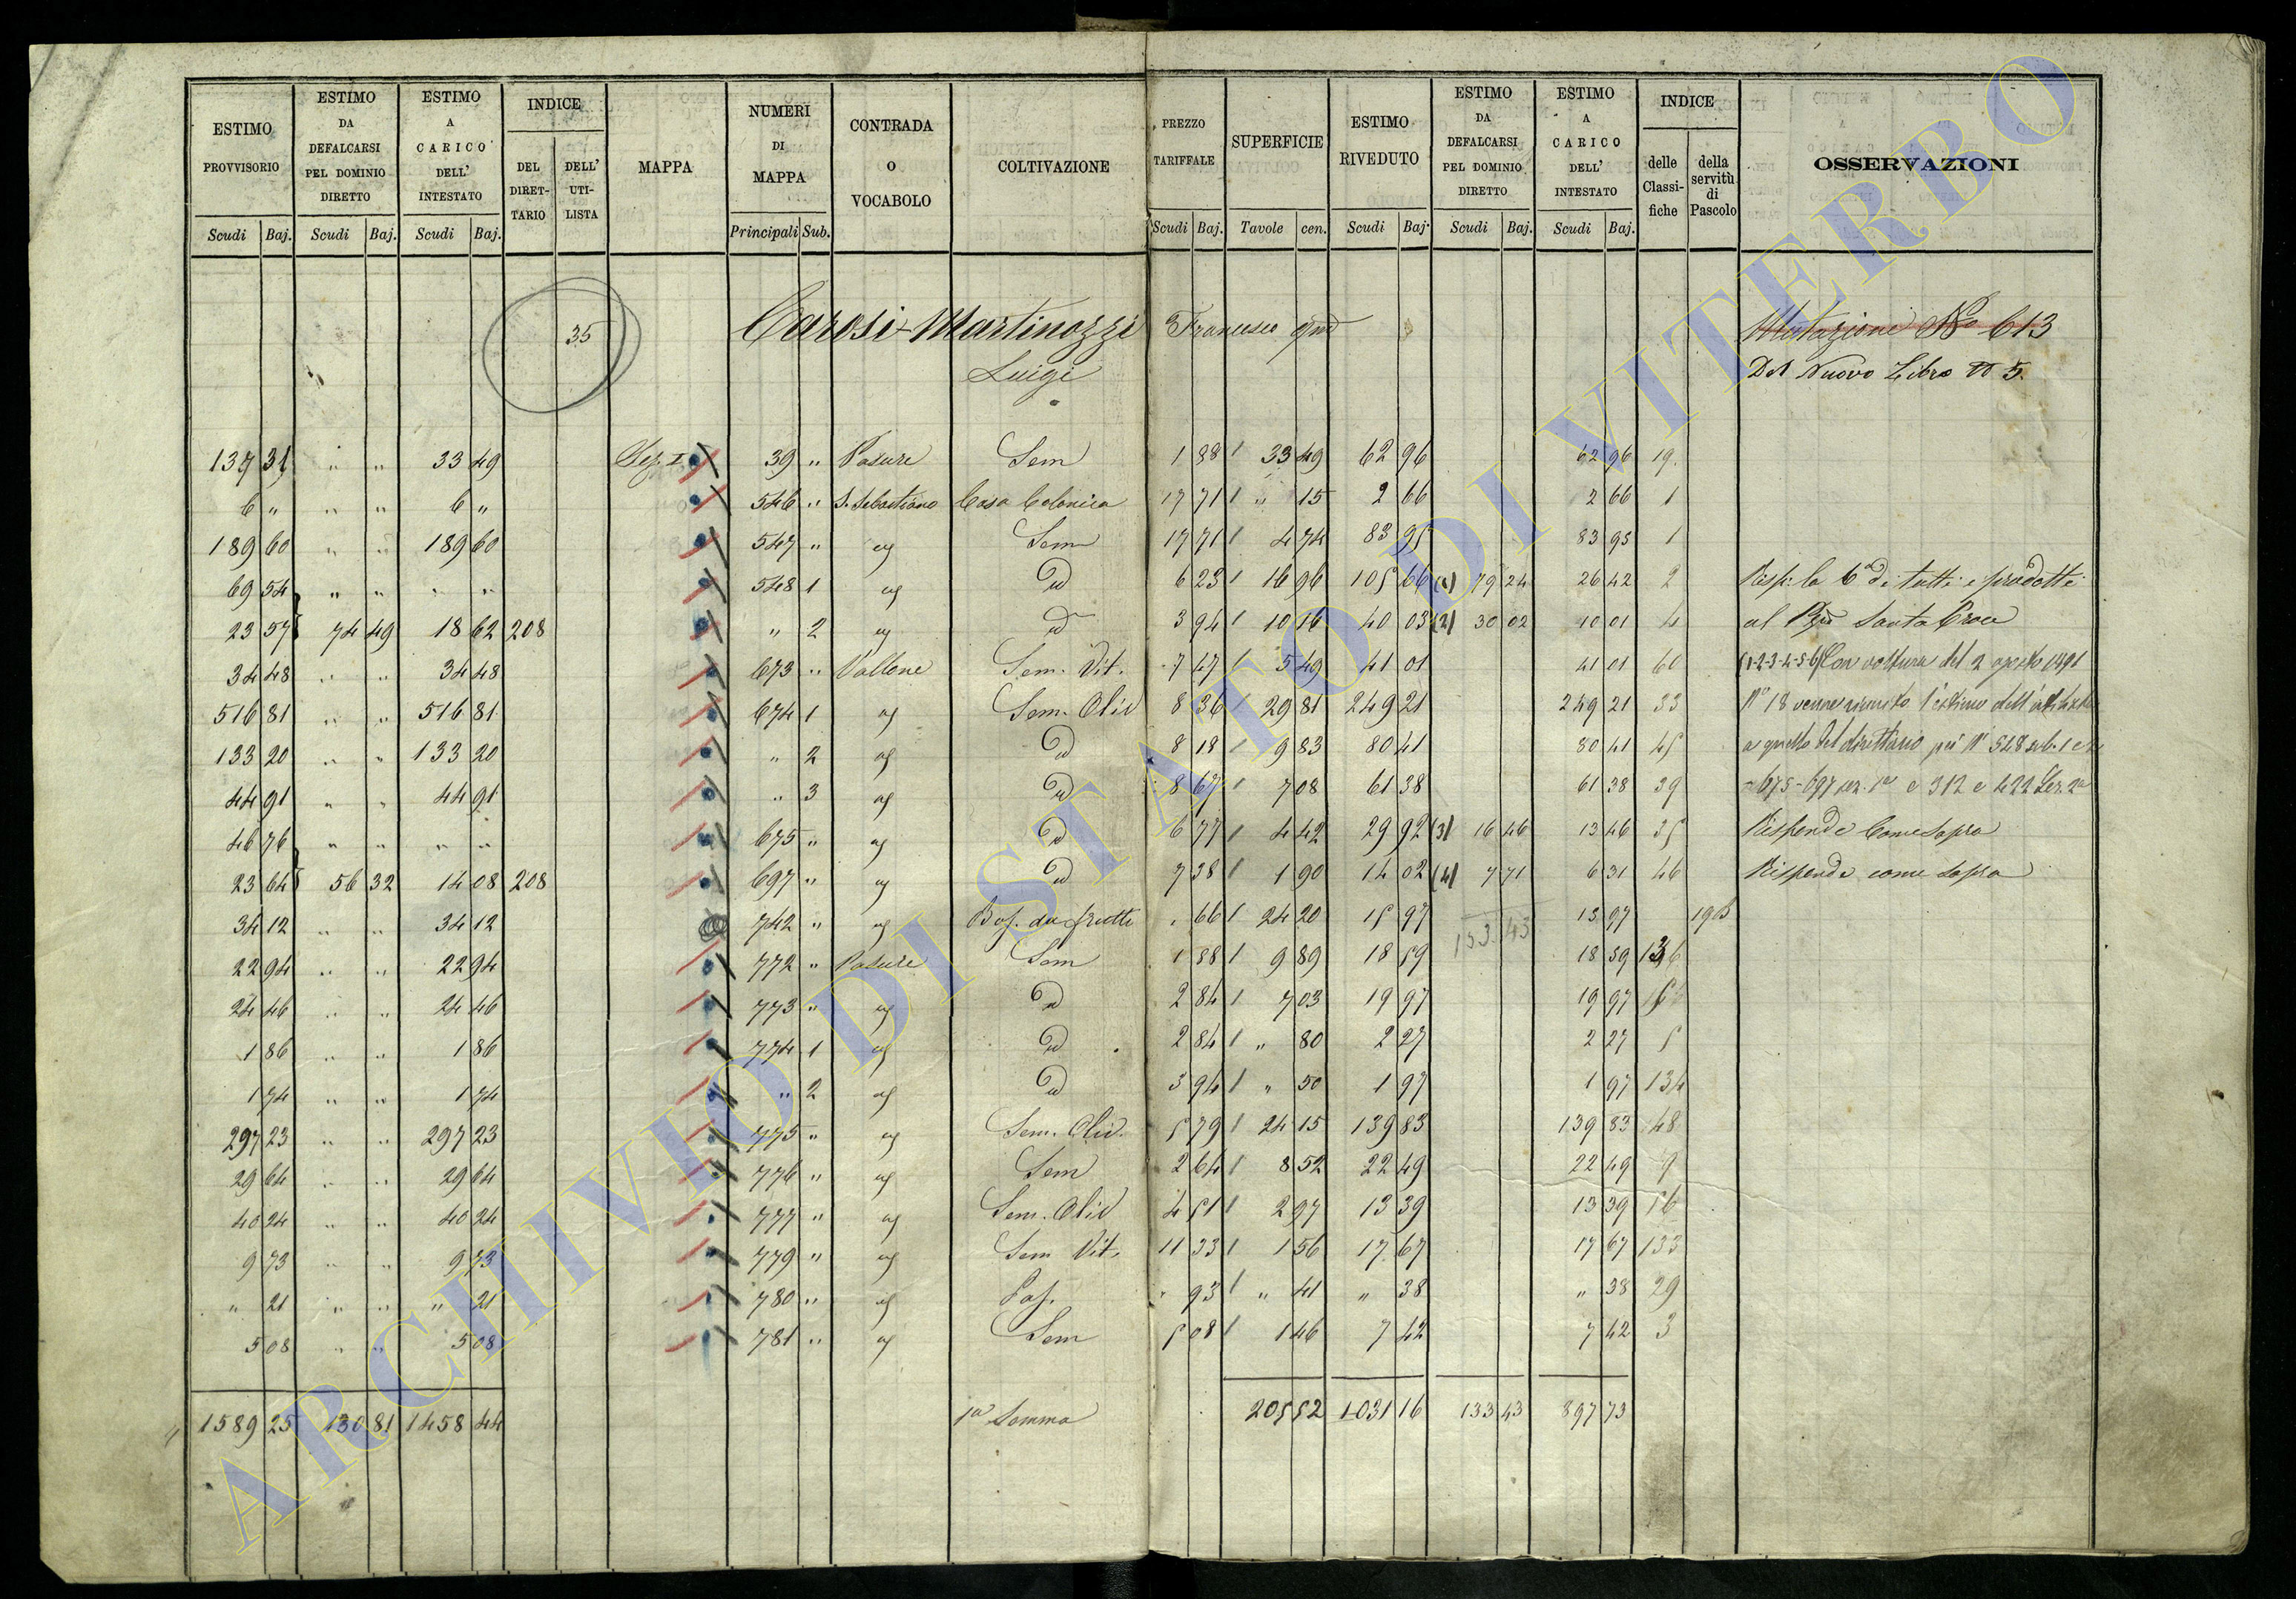 ESTIMO PROVVISORIO Scudi Baj. | ESTIMO DA DEFALCARSI PEL DOMINIO DIRETTO Scudi Baj. | ESTIMO A CARICO DELL' INTESTATO Scudi Baj. | INDICE DEL DIRET-TARIO | DELL' UTI-LISTA | MAPPA | NUMERI DI MAPPA Principali Sub. | CONTRADA O VOCABOLO | COLTIVAZIONE | PREZZO TARIFFALE Scudi Baj. | SUPERFICIE Tavole cen. | ESTIMO RIVEDUTO Scudi Baj. | ESTIMO DA DEFALCARSI PEL DOMINIO DIRETTO Scudi Baj. | ESTIMO A CARICO DELL' INTESTATO Scudi Baj. | INDICE delle Classi-fiche | della servitù di Pascolo | OSSERVAZIONI
35 Carosi-Martinozzi Francesco qm Mutazione No 613
Luigi Del Nuovo Libro N 5.
137 31 " " 33 49 Sez. I 39 " Pasure Sem 1 88 33 49 62 96 62 96 19
6 " " " 6 " 546 " S. Sebastiano Casa Colonica 17 71 " 15 2 66 2 66 1
189 60 " " 189 60 547 " id Sem 17 71 4 74 83 95 83 95 1
69 54 " " " " 548 1 id Id 6 23 16 96 105 66 (1) 79 24 26 42 2 Risp: la 6a di tutti i prodotti
23 57 74 49 18 62 208 " 2 id id 3 94 10 16 40 03 (2) 30 02 10 01 4 al Santa Croce
34 48 " " 34 48 673 " Vallone Sem. Vit. 7 47 5 49 41 01 41 01 60 (1-2-3-4-5-6) Con voltura del 2 agosto 1891
516 81 " " 516 81 674 1 id Sem. Oliv 8 36 29 81 249 21 249 21 33 No 18 venne riunito l'estimo dell'utilista
133 20 " " 133 20 " 2 id Id 8 18 9 83 80 41 80 41 45 a quello del direttario pei Ni 548 sub. 1 e 2
44 91 " " 44 91 " 3 id Id 8 67 7 08 61 38 61 38 39 675-697 sez. 1a e 312 e 422 Sez. 2a
46 76 " " " " 675 " id Id 6 77 4 42 29 92 (3) 16 46 13 46 35 Risponde Come Sopra
23 64 56 32 14 08 208 697 " id Id 7 38 1 90 14 02 (4) 7 71 6 31 46 Risponde come sopra
34 12 " " 34 12 742 " id Bos. da frutti " 66 24 20 15 97 15 97 19
22 94 " " 22 94 772 " Pasure Sem 1 88 9 89 18 59 133 43 18 59 136
24 46 " " 24 46 773 " id Id 2 84 7 03 19 97 19 97 5
1 86 " " 1 86 774 1 id Id 2 84 " 80 2 27 2 27 5
1 74 " " 1 74 " 2 id Id 3 94 " 50 1 97 1 97 134
297 23 " " 297 23 775 " id Sem. Oliv. 5 79 24 15 139 83 139 83 48
29 64 " " 29 64 776 " id Sem 2 64 8 52 22 49 22 49 9
40 24 " " 40 24 777 " id Sem. Oliv 4 51 2 97 13 39 13 39 56
9 73 " " 9 73 779 " id Sem Vit. 11 33 1 56 17 67 17 67 133
" 21 " " " 21 780 " id Pas. " 93 " 41 " 38 " 38 29
5 08 " " 5 08 781 " id Sem 5 08 1 46 7 42 7 42 3
1589 25 130 81 1458 44 1a Somma 205 52 1031 16 133 43 897 73
ARCHIVIO DI STATO DI VITERBO